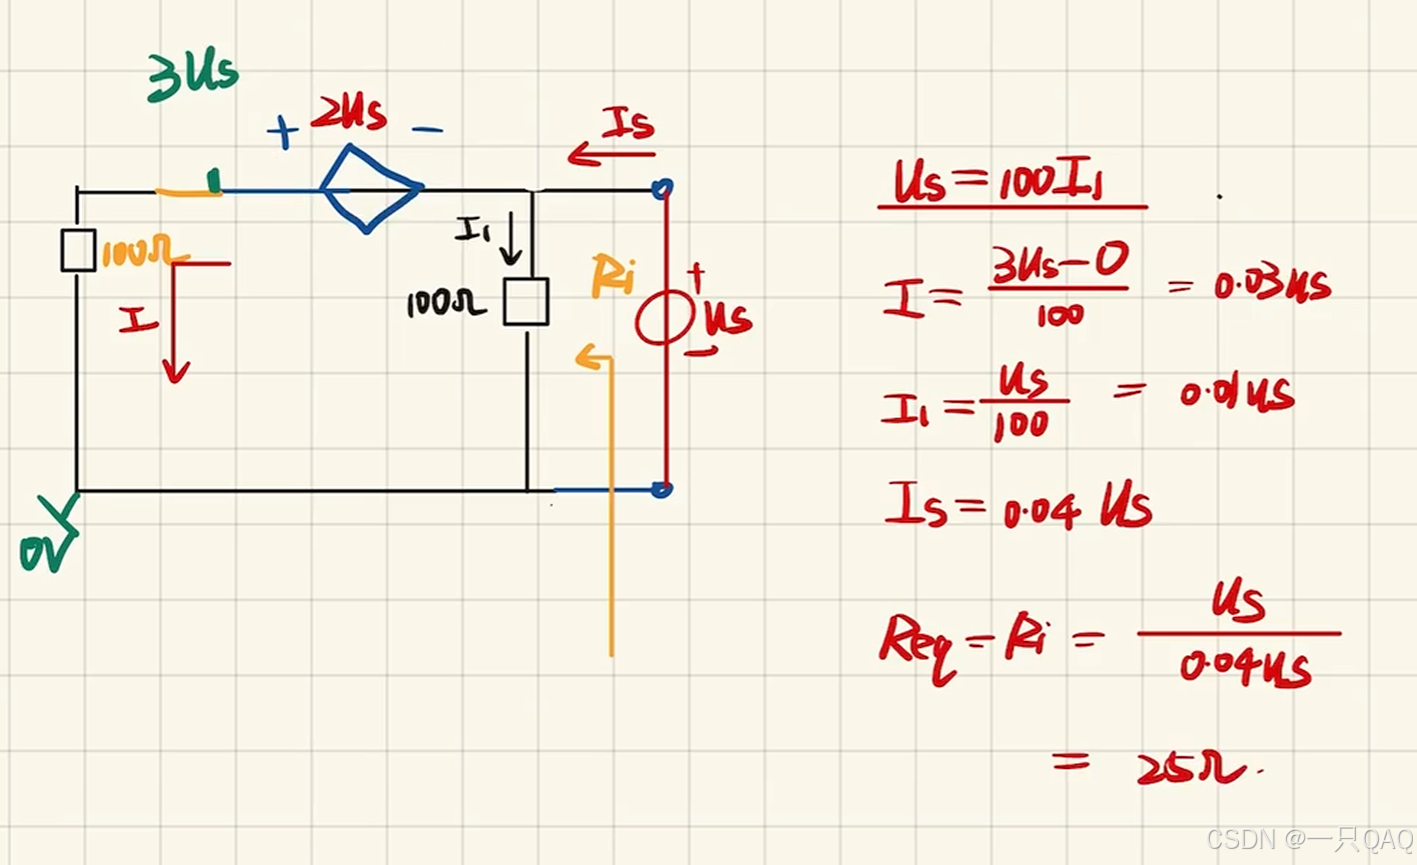 3Us
+ 2Us −
Is
100Ω
I
I₁
100Ω
Ri
+
Us
−
0V
Us = 100I₁
I = (3Us − 0)/100 = 0.03Us
I₁ = Us/100 = 0.01Us
Is = 0.04 Us
Req = Ri = Us/0.04Us
= 25Ω.
CSDN @一只QAQ